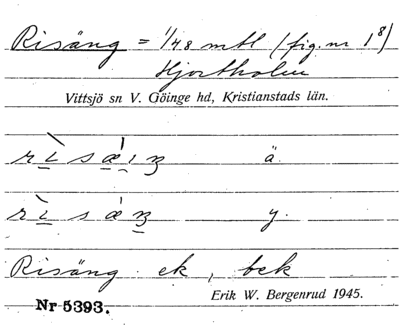 Risäng = 1/48 mtl (fig. nr 1⁸)
Hjortholm
Vittsjö sn V. Göinge hd, Kristianstads län.
ä.
y.
Risäng. ek, bek
Erik W. Bergenrud 1945.
Nr 5393.